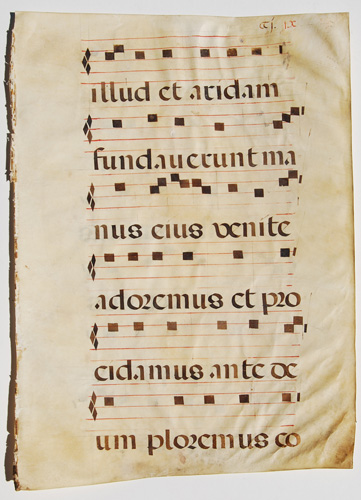 illud et aridam
fundauerunt ma
nus eius venite
adoremus et pro
cidamus ante de
um ploremus co